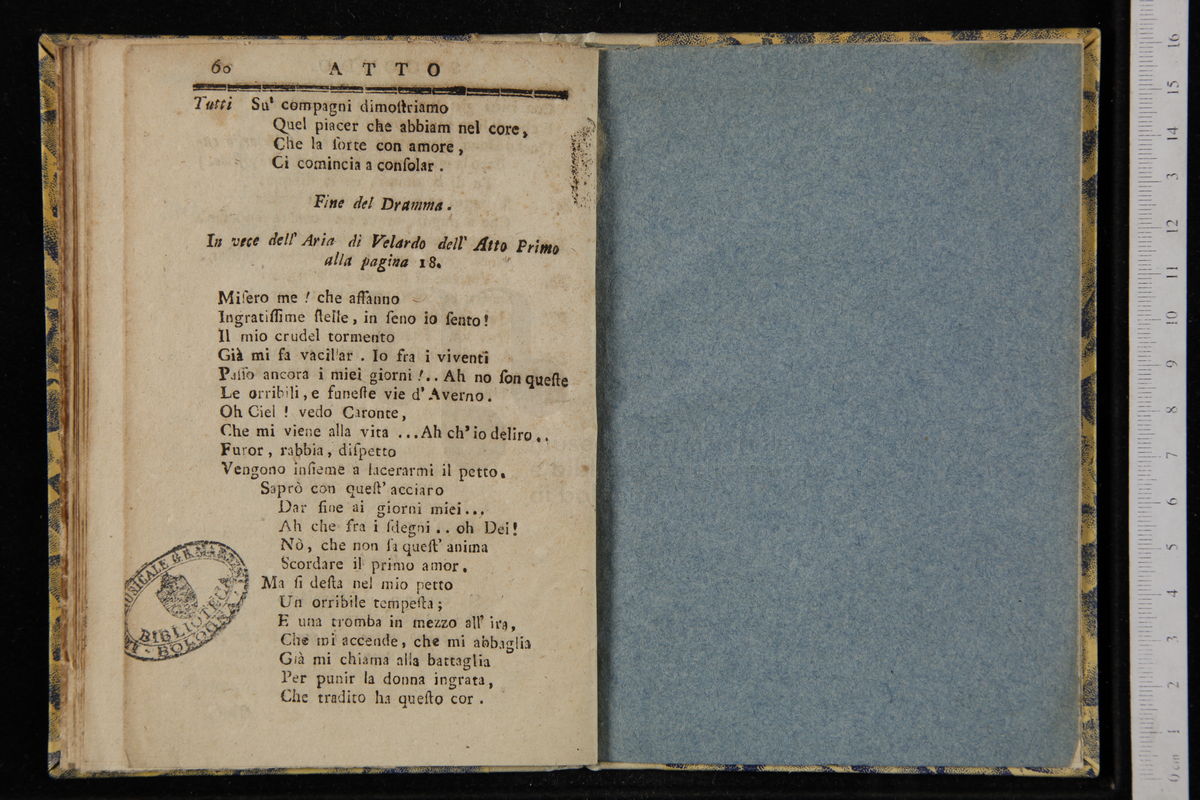 60 ATTO
Tutti Su' compagni dimoſtriamo
Quel piacer che abbiam nel core,
Che la ſorte con amore,
Ci comincia a conſolar.
Fine del Dramma.
In vece dell' Aria di Velardo dell' Atto Primo
alla pagina 18.
Miſero me! che affanno
Ingratiſſime ſtelle, in ſeno io ſento!
Il mio crudel tormento
Già mi fa vacillar. Io fra i viventi
Paſſo ancora i miei giorni!.. Ah no ſon queſte
Le orribili, e funeſte vie d'Averno.
Oh Ciel! vedo Caronte,
Che mi viene alla vita ...Ah ch'io deliro..
Furor, rabbia, diſpetto
Vengono inſieme a lacerarmi il petto.
Saprò con queſt' acciaro
Dar fine ai giorni miei...
Ah che fra i ſdegni.. oh Dei!
Nò, che non ſa queſt' anima
Scordare il primo amor.
Ma ſi deſta nel mio petto
Un orribile tempeſta;
E una tromba in mezzo all' ira,
Che mi accende, che mi abbaglia
Già mi chiama alla battaglia
Per punir la donna ingrata,
Che tradito ha queſto cor.
BIBLIOTECA
BOLOGNA
0 cm 1 2 3 4 5 6 7 8 9 10 11 12 3 14 15 16